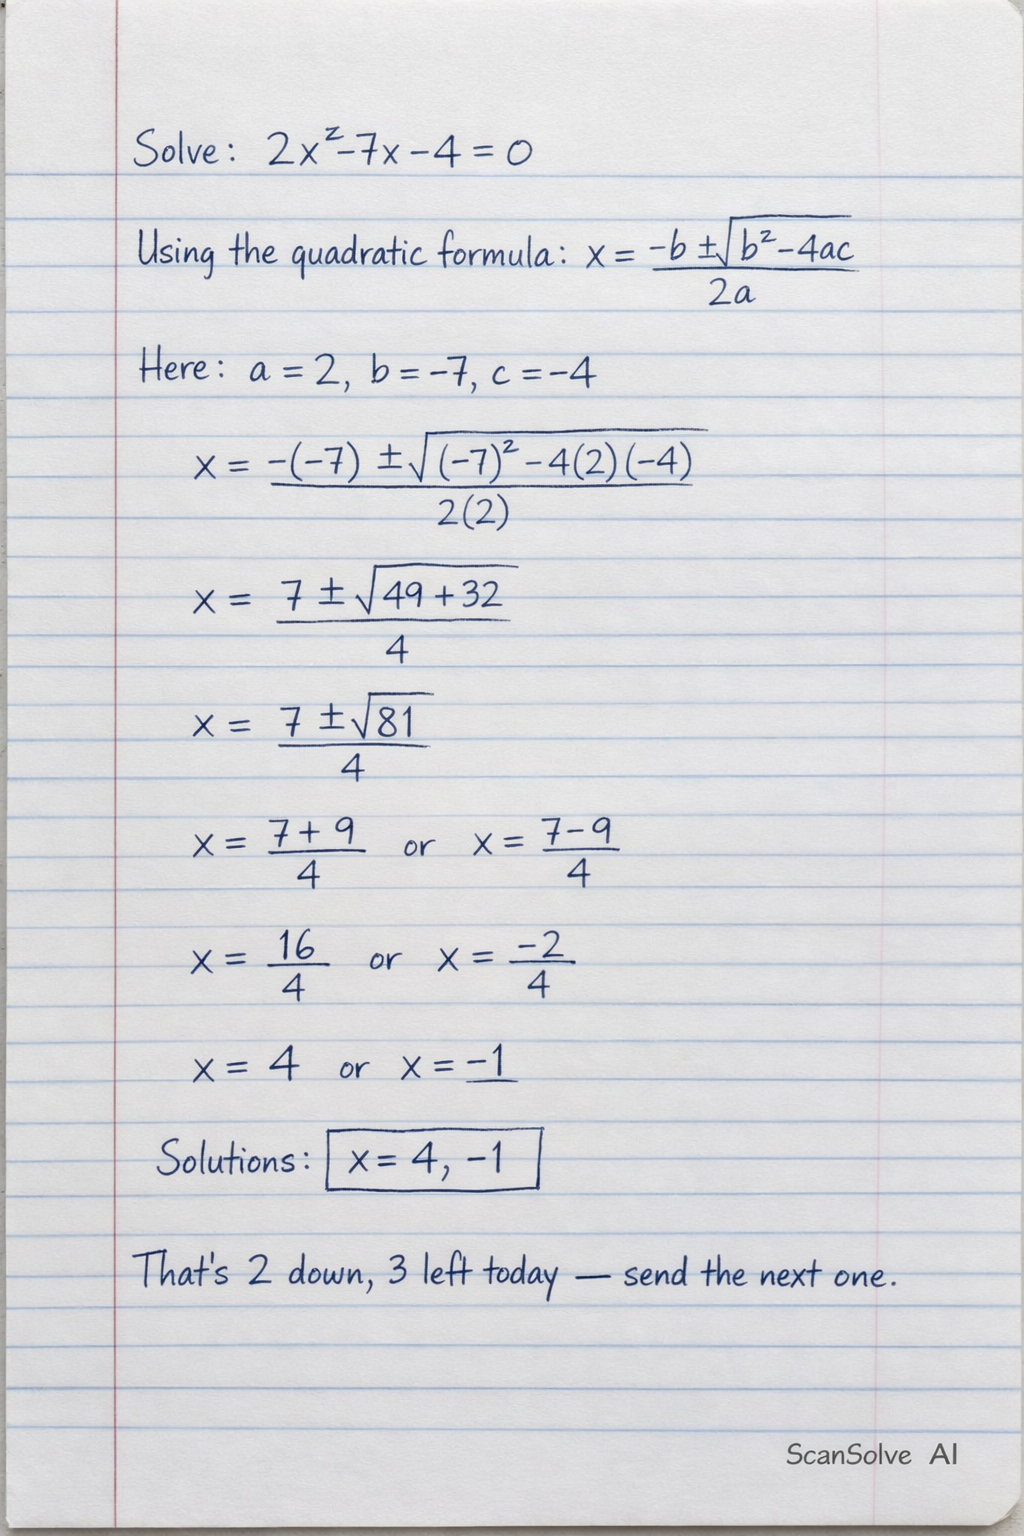 Solve: 2x²-7x-4=0
Using the quadratic formula: x = (-b ±√(b²-4ac))/(2a)
Here: a = 2, b = -7, c = -4
x = (-(-7) ±√((-7)² - 4(2)(-4)))/(2(2))
x = (7 ±√(49+32))/4
x = (7 ±√81)/4
x = (7+9)/4 or x = (7-9)/4
x = 16/4 or x = -2/4
x = 4 or x = -1
Solutions: x = 4, -1
That's 2 down, 3 left today — send the next one.
ScanSolve AI